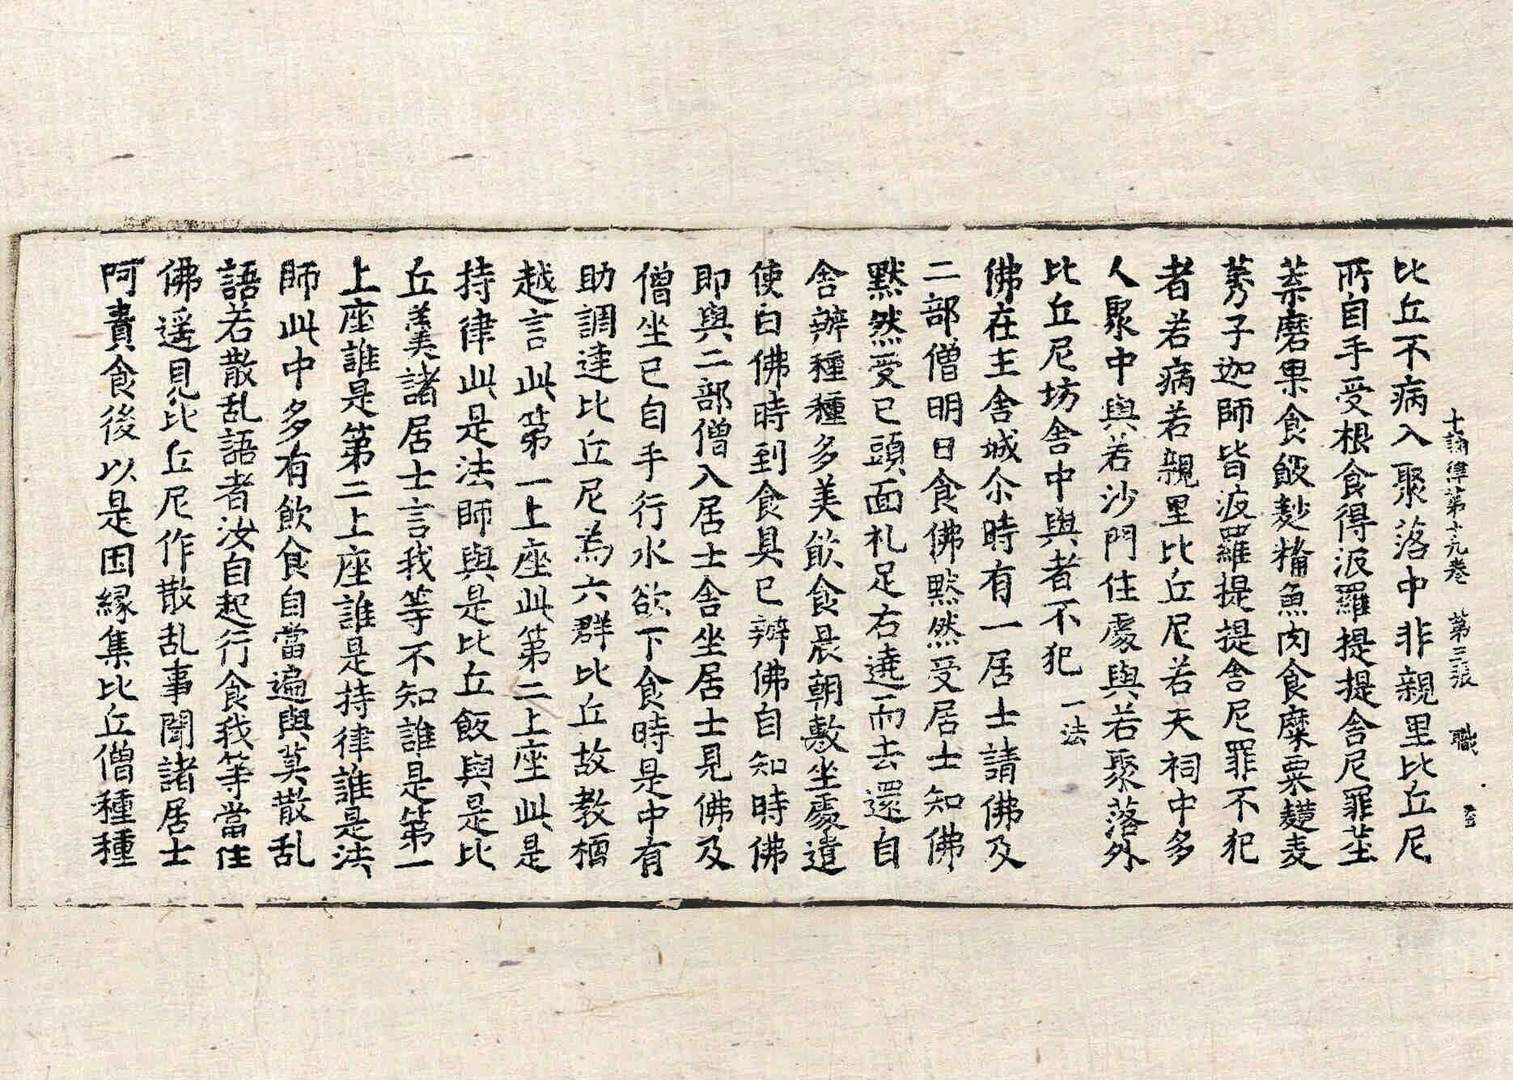 十誦律第十九卷 第三張 職
比丘不病入聚落中非親里比丘尼
所自手受根食得波羅提提舍尼罪莖
葉磨果食飯麨糒魚肉食糜粟䵃麦
莠子迦師皆波羅提提舍尼罪不犯
者若病若親里比丘尼若天祠中多
人聚中與若沙門住處與若聚落外
比丘尼坊舍中與者不犯 一法
佛在王舍城尒時有一居士請佛及
二部僧明日食佛默然受居士知佛
默然受已頭面礼足右遶而去還自
舍辦種種多美飲食晨朝敷坐處遣
使白佛時到食具已辦佛自知時佛
即與二部僧入居士舍坐居士見佛及
僧坐已自手行水欲下食時是中有
助調達比丘尼為六群比丘故教檀
越言此第一上座此第二上座此是
持律此是法師與是比丘飯與是比
丘羹諸居士言我等不知誰是第一
上座誰是第二上座誰是持律誰是法
師此中多有飲食自當遍與莫散乱
語若散乱語者汝自起行食我等當住
佛遥見比丘尼作散乱事聞諸居士
呵責食後以是因緣集比丘僧種種